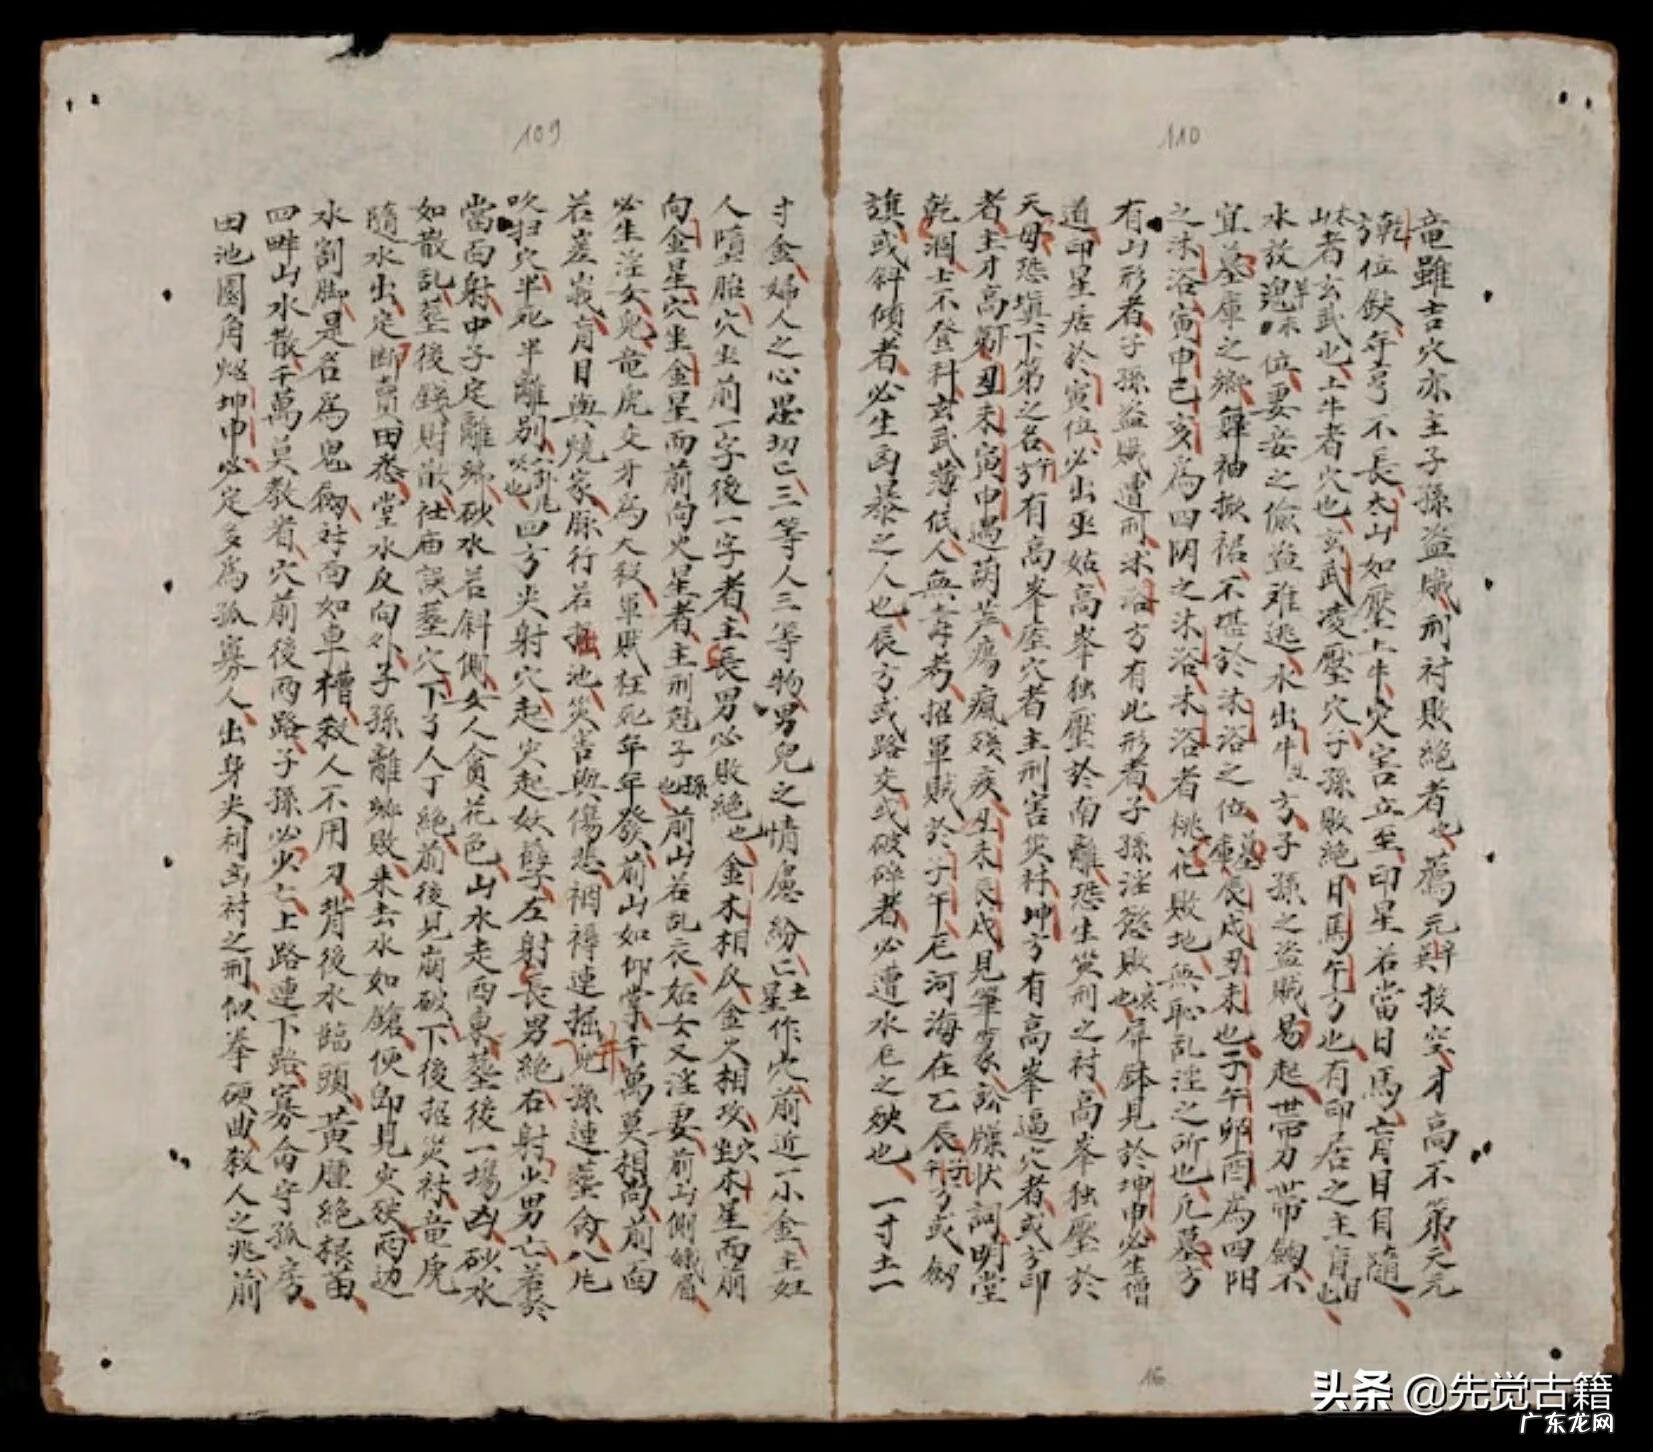 110
竜雖吉穴亦主子孫盗賊刑衬敗絶者也 薦元辨異投空才高不第元元
乾方位缺年亨不長太山如壓上牛灾害立至印星若當日馬盲目目隨
者玄武也上牛者穴也玄武凌壓穴子孫敗絶日馬午方也有印居之主盲目也
水放 位妻妾之偷盗难逃水出牛 方子孫之盗賊易起帶刀帶劔不
宜墓庫之鄉舞袖掀裙不堪於沐浴之位墓庫辰戌丑未也子午卯酉為四陽
之沐浴寅申巳亥為四阴之沐浴沐浴者桃花敗地無恥乱淫之所也凡墓方
有山形者子孫盗賊遭刑沐浴方有此形者子孫淫慾敗衰也屏鉢見於坤申必生僧
道印星居於寅位必出巫姑高峯独壓於南離恐生災刑之衬高峯独壓於
天母恐塡下第之名 有高峯座穴者主刑害災衬坤方有高峯逼穴者或方印
者主才高 丑未寅申遇葫芦瘍瘋殘疾丑未辰戌見筆案訟牒状詞明堂
乾涸士不登科玄武薄低人無壽考招軍賊於子午厄河海在乙辰子午方或劔
旗或斜傾者必生凶暴之人也辰方或路交或破碎者必遭水厄之殃也一寸土一
109
寸金婦人之心思切亡三等人三等物男兒之情慮紛亡土星作穴前近一小金主妊
人墮胎穴坐前一字後一字者主長男必敗絶也金木相反金火相攻坐穴木星而前
向金星穴坐金星而前向火星者主刑尅子孫也前山若乱衣妬女又淫妻前山側蛾眉
必生淫女兒竜虎交牙為大殺軍賊狂死年年發前山如仰掌千萬莫相向前面
若崖峩盲目與燒家脉行若掘池災害與傷悲裀褥連掘兒孫連塟命八片
吹扫穴半死半離別 四方尖射穴起灾起妖孽左射長男絶右射少男亡若於
當面射中子定離鄉砂水若斜側女人貪花色山水走西東塟後一場凶砂水
如散乱塟後錢財散社庙誤塟穴下了人丁絶前後見崩破下後招災衬竜虎
隨水出定断賣田悉堂水反向外子孫離鄉敗来去水如鎗便即見灾殃両边
水割脚是名為鬼劔对面如車槽殺人不用刀背後水臨頭黄腫絶根苗
四畔山水散千萬莫教省穴前後両路子孫必火亡上路連下路寡命守孤房
田池園角 坤申必定多為孤寡人出身尖利玄衬之刑似拳硬曲殺人之兆前
16
头条 @先觉古籍
广东龙网